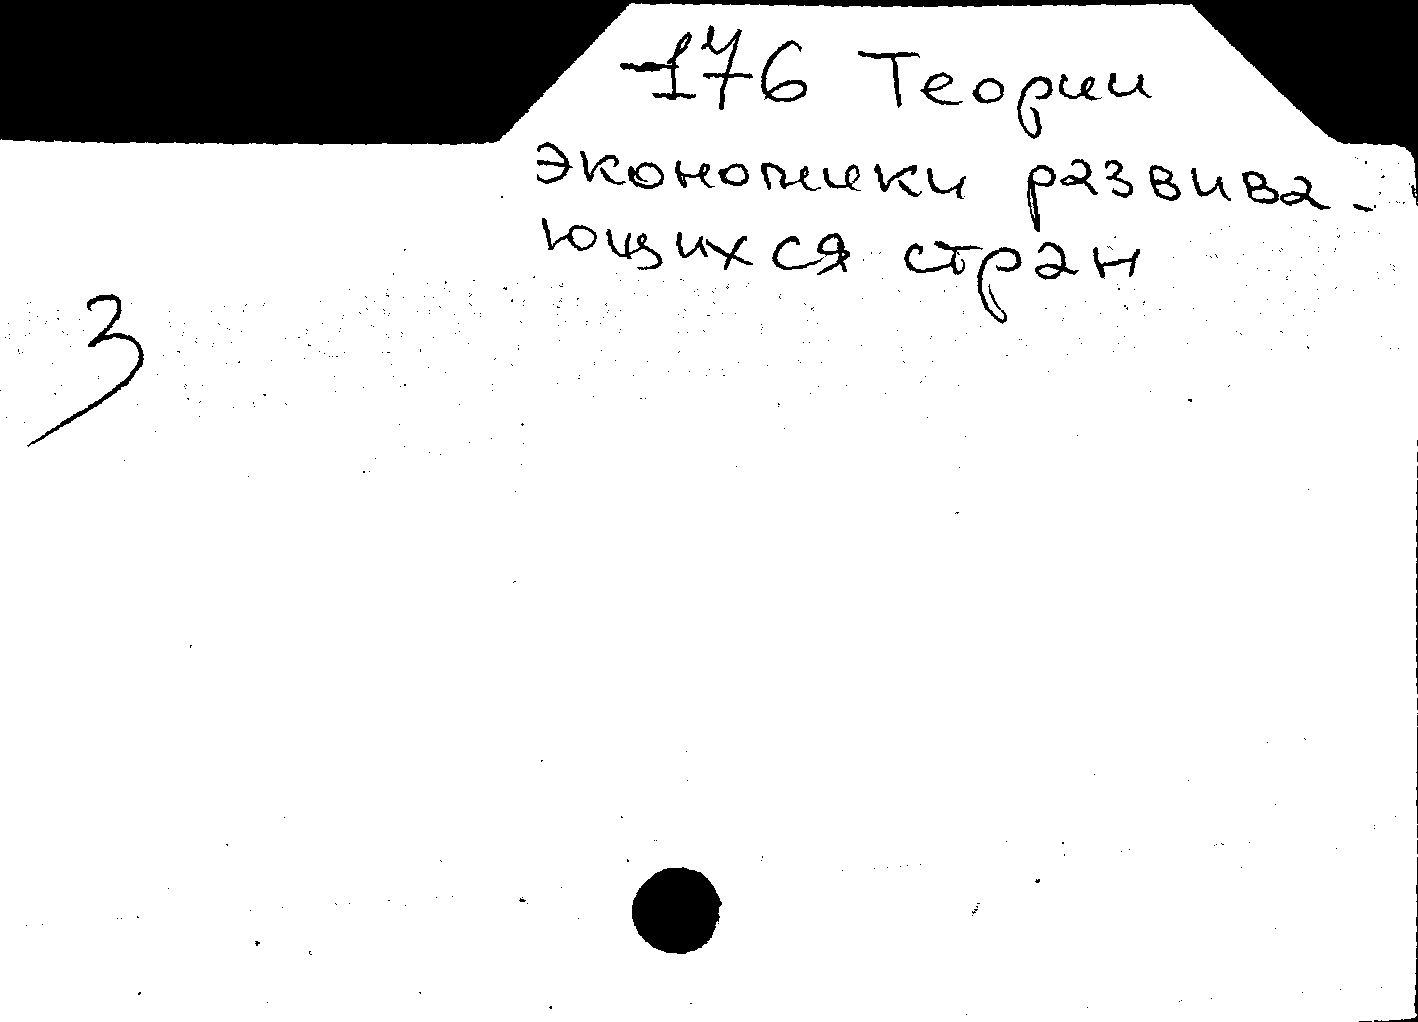 -176 Теории
экономики развива-
ющихся стран
3